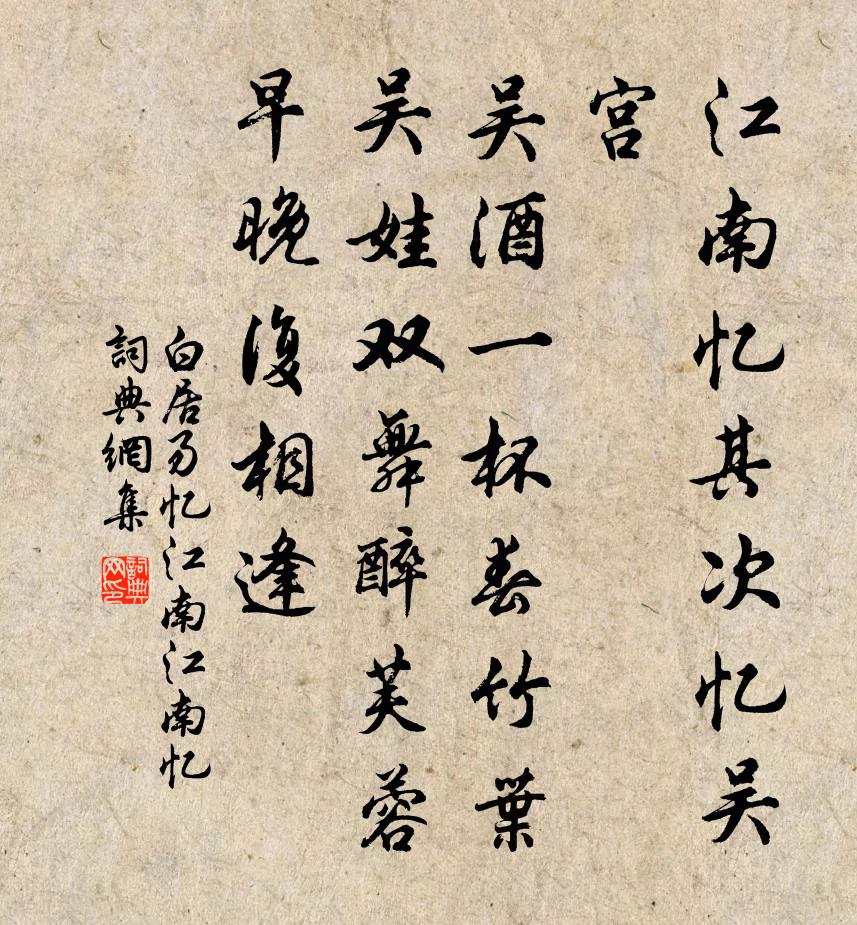 江南忆其次忆吴
宫
吴酒一杯春竹葉
吴娃双舞醉芙蓉
早晚復相逢
白居易忆江南江南忆
詞典網集
詞典
网印